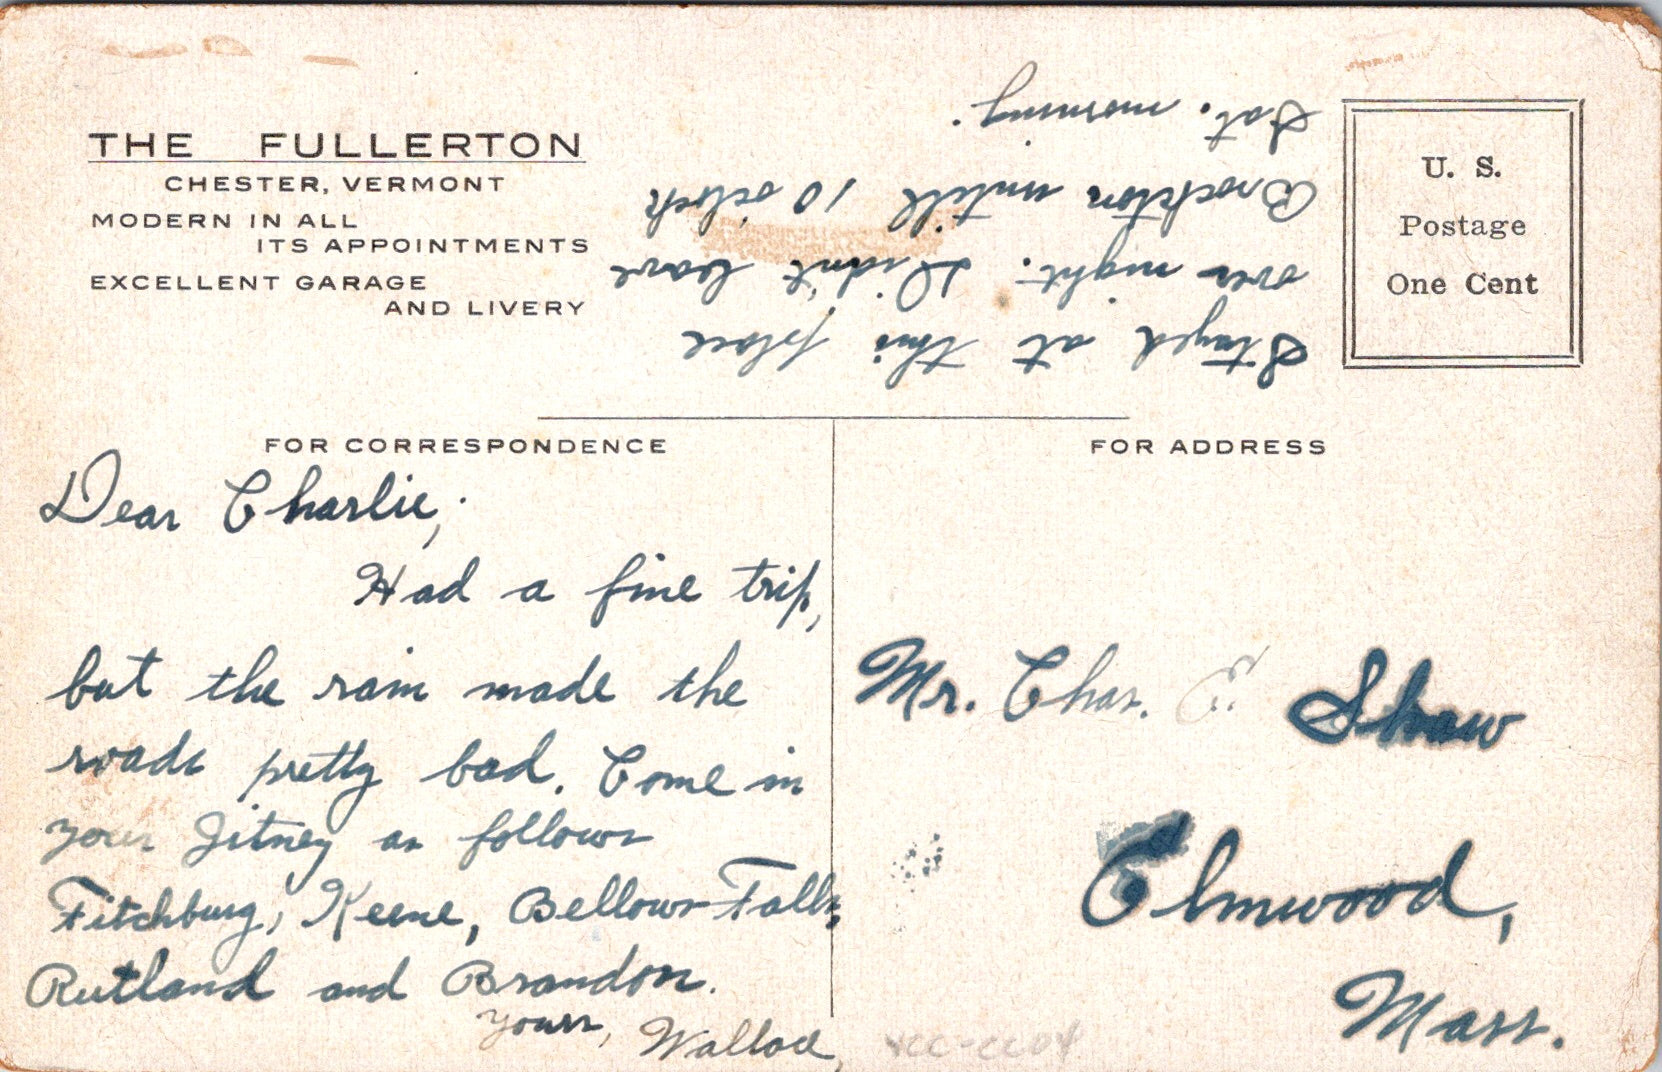 THE FULLERTON
CHESTER, VERMONT
MODERN IN ALL
ITS APPOINTMENTS
EXCELLENT GARAGE
AND LIVERY
U. S.
Postage
One Cent
Stayed at this place
over night. Didn't leave
Brockton untill 10 oclock
Sat. morning.
FOR CORRESPONDENCE
FOR ADDRESS
Dear Charlie;
Had a fine trip,
but the rain made the
roads pretty bad. Come in
your Jitney as follows
Fitchburg, Keene, Bellows Falls,
Rutland and Brandon.
Yours, Wallace
Mr. Chas. E. Shaw
Elmwood,
Mass.